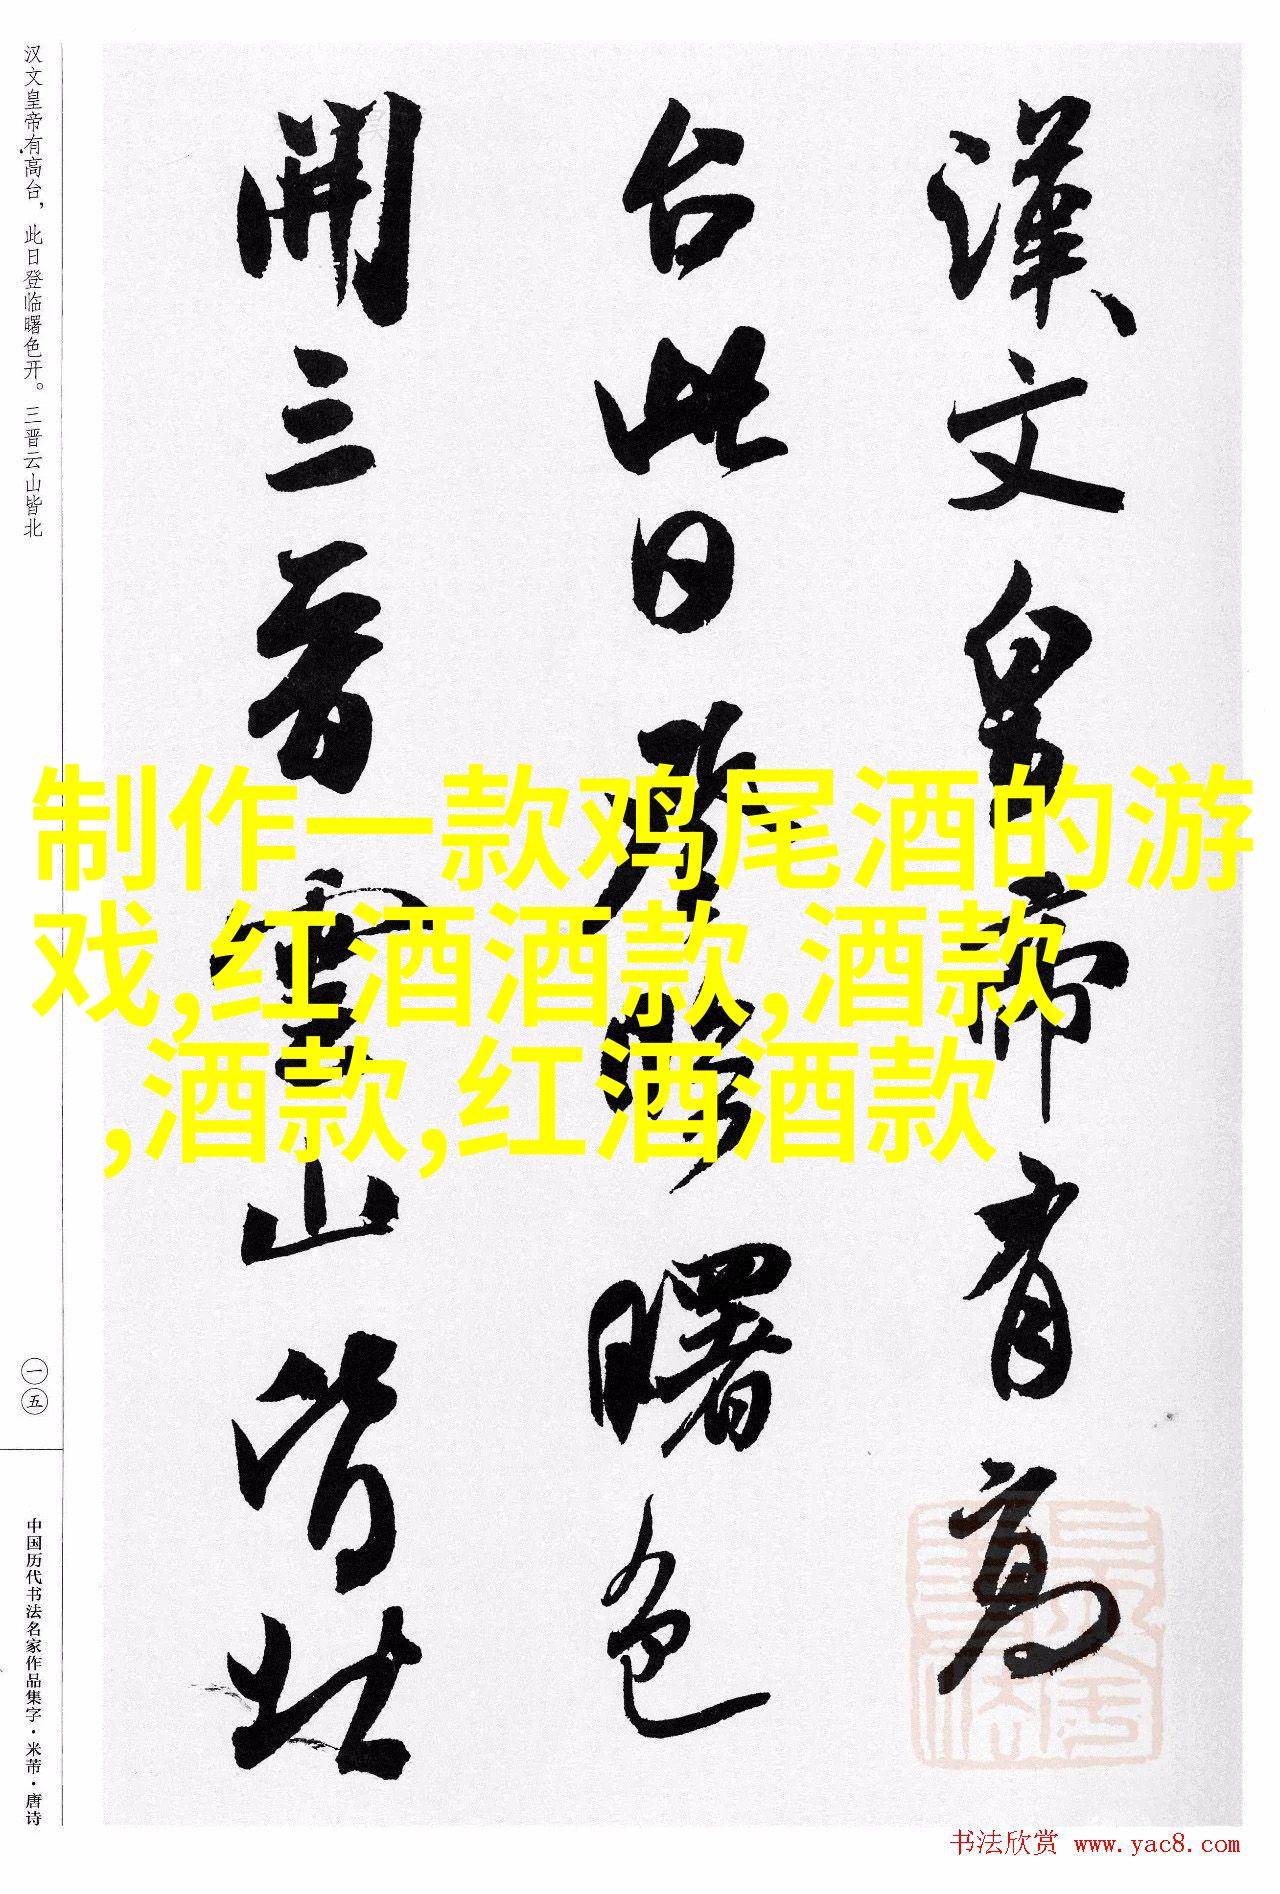 漢文皇帝有高
台此日登臨曙色
開三晉雲山皆北
汉文皇帝有高台，此日登临曙色开。三晋云山皆北
一五
中国历代书法名家作品集字·米芾·唐诗
制作一款鸡尾酒的游
戏,红酒酒款,酒款
,酒款,红酒酒款
书法欣赏 www.yac8.com